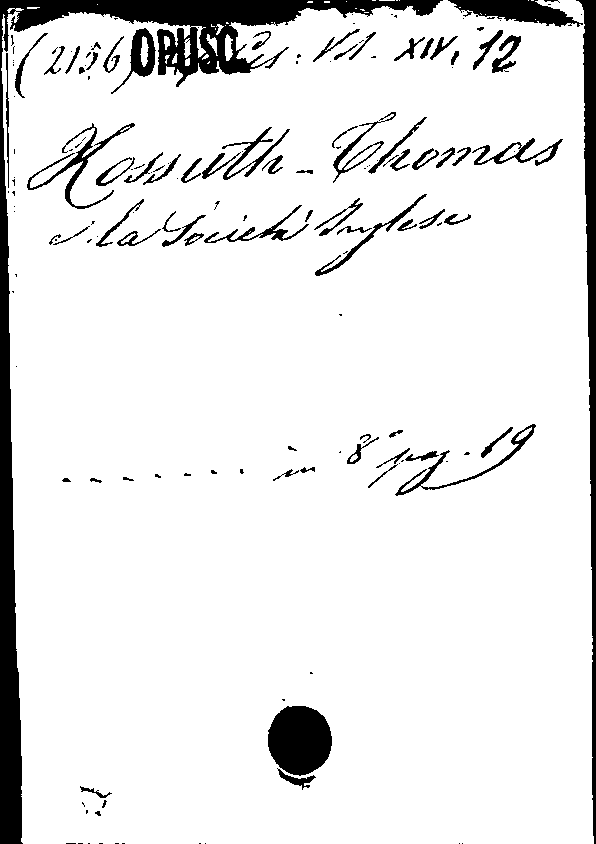 (2156) OPUSC. Vol. XIV, 12
Kossuth - Thomas
e la Società Inglese
. . . . . . . in 8° pag. 19